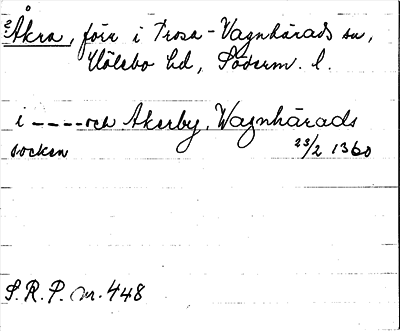 2 Åkra, förr i Trosa-Vagnhärads sn,
Hölebo hd, Söderm. l.
i ----och Akerby, Wagnhärads
socken 23/2 1360
S.R.P. nr. 448